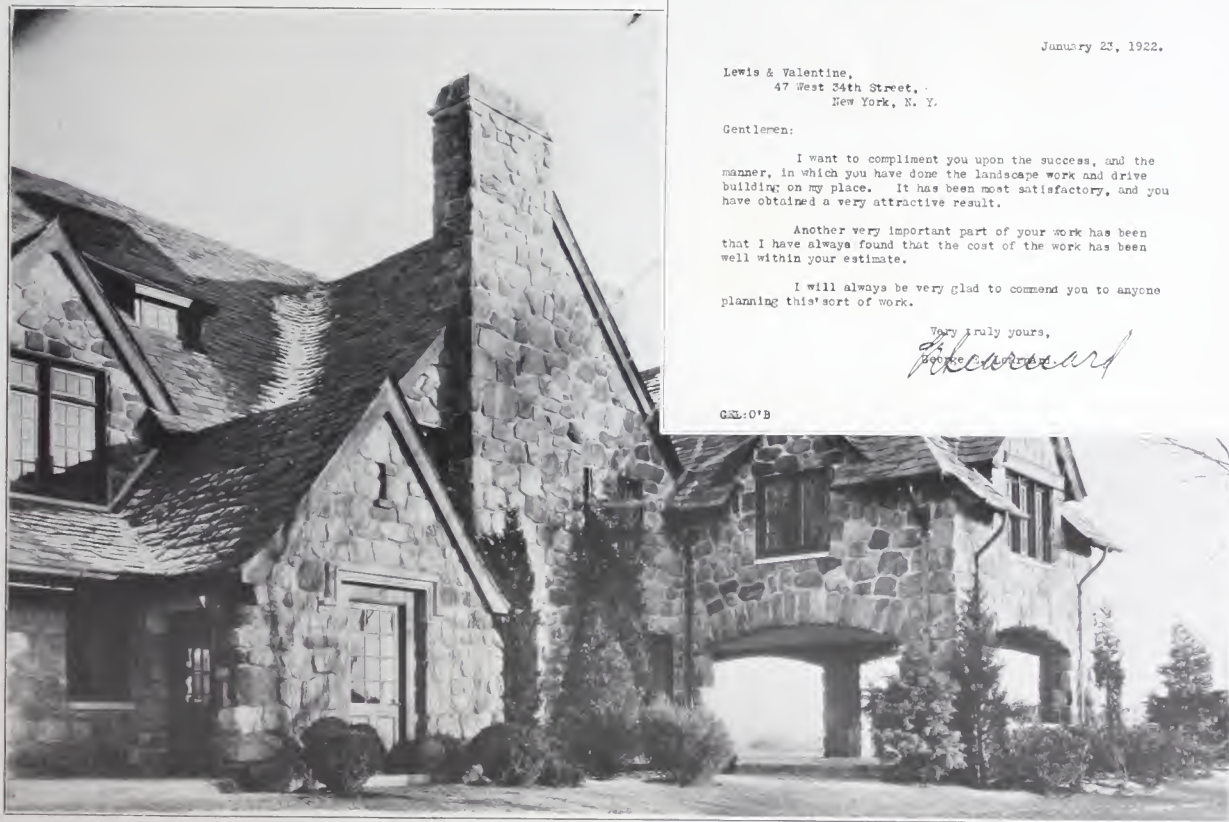 January 23, 1922.
Lewis & Valentine,
47 West 34th Street,
New York, N. Y.
Gentlemen:
I want to compliment you upon the success, and the
manner, in which you have done the landscape work and drive
building on my place. It has been most satisfactory, and you
have obtained a very attractive result.
Another very important part of your work has been
that I have always found that the cost of the work has been
well within your estimate.
I will always be very glad to commend you to anyone
planning this sort of work.
Very truly yours,
George
GEL:O'B